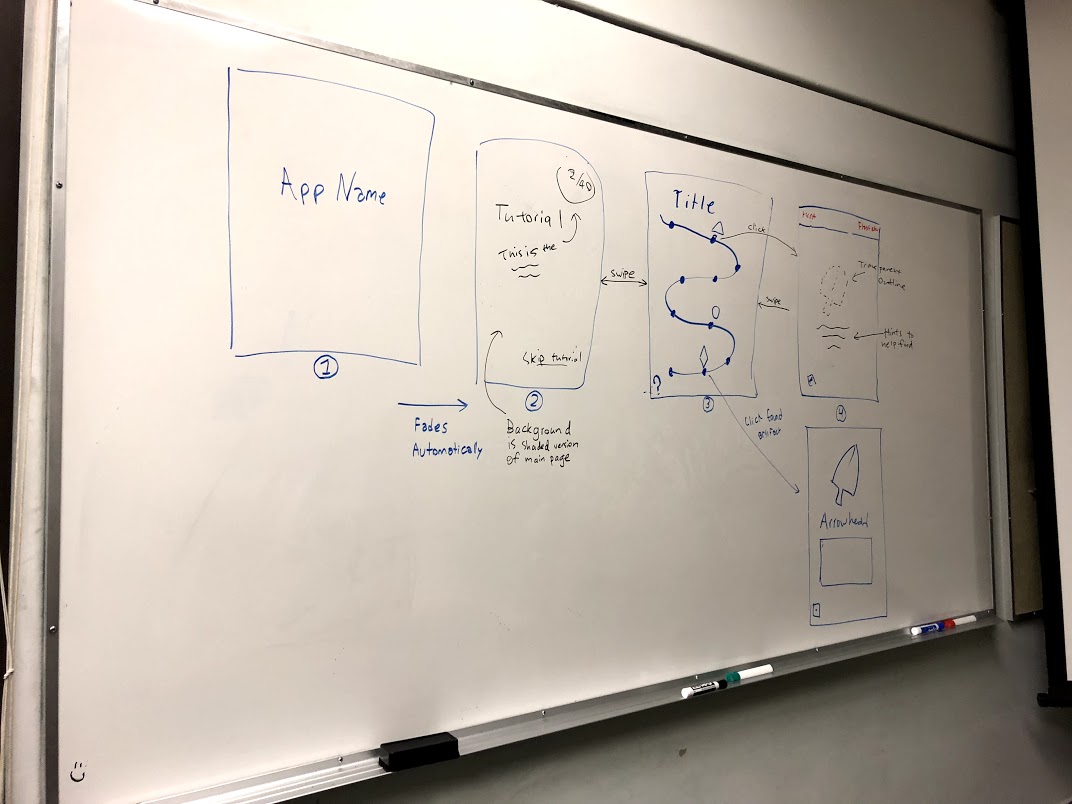 App Name
1
Fades
Automatically
2/40
Tutorial
This is the
Skip tutorial
2
Background
is shaded version
of main page
swipe
Title
?
3
click
swipe
Click found
artifact
Transparent
outline
Hints to
help find
4
Arrowhead